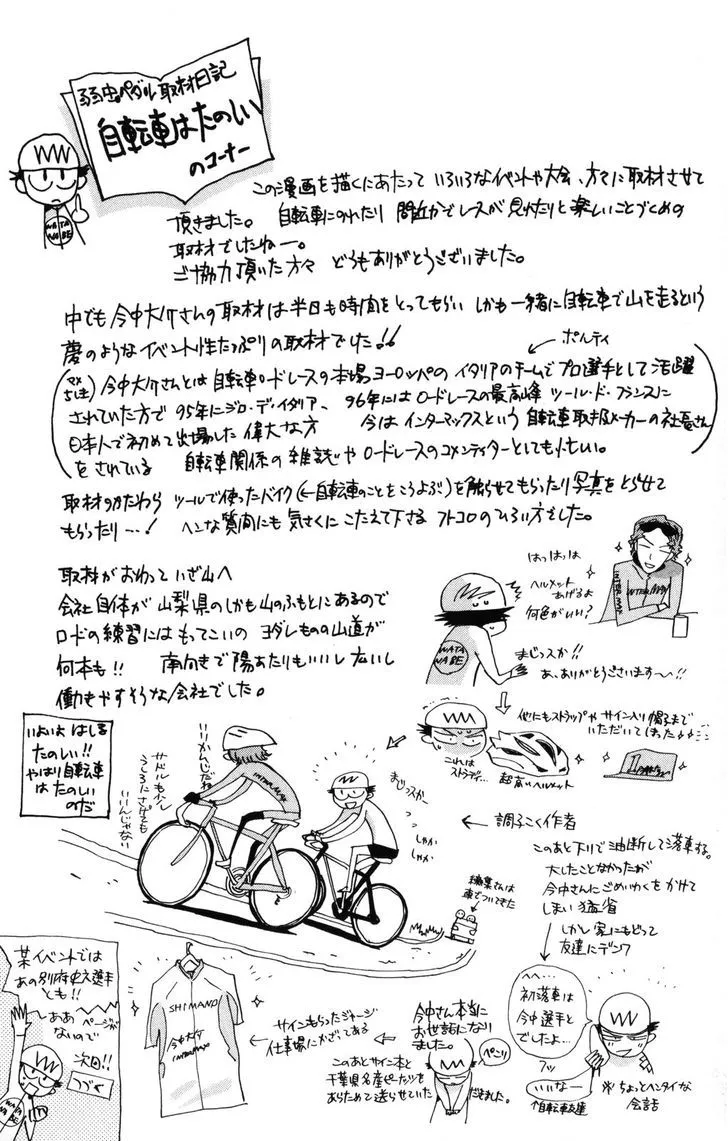 弱虫ペダル取材日記
自転車はたのしい
のコーナー
この漫画を描くにあたって いろいろなイベントや大会、方々に取材させて
頂きました。 自転車にのれたり 間近かでレースが見れたりと楽しいことづくめの
取材でしたねー。
ご協力頂いた方々 どうもありがとうございました。
中でも今中大介さんの取材は半日も時間をとってもらい しかも一緒に自転車で山を走るという
夢のようなイベント性たっぷりの取材でした!!
ポルティ
今中大介さんとは自転車ロードレースの本場ヨーロッパのイタリアのチームでプロ選手として活躍
されていた方で95年にジロ・デ・イタリア、 96年にはロードレースの最高峰 ツール・ド・フランスに
日本人で初めて出場した偉大な方 今はインターマックスという自転車取扱メーカーの社長さん
をされている 自転車関係の雑誌やロードレースのコメンテイターとしても忙しい。
取材のかたわら ツールで使ったバイク(←自転車のことをこうよぶ)を触らせてもらったり写真をとらせて
もらったり…! ヘンな質問にも気さくにこたえて下さる フトコロのひろい方でした。
取材がおわって いざ山へ
会社自体が山梨県のしかも山のふもとにあるので
ロードの練習にはもってこいの ヨダレものの山道が
何本も!! 南向きで陽あたりもいいし広いし
働きやすそうな会社でした。
はっはっは
ヘルメット
あげるよ
何色がいい?
INTERMAX
WATA
NABE
まじっスか!!
あ、ありがとうございます〜〜!!
他にもストラップやサイン入り帽子まで
いただいてしまった
これは
ストラディ…
超高いヘルメット
いよいよ はしる
たのしい!!
やはり自転車
は たのしい
のだ
いいかんじだね
サドルもう少し
うしろにさげても
いいんじゃない
まじっスかー
しゃか
しゃか
調子こく作者
編集さんは
車でついてきた
このあと下りで油断して落車する。
大したことなかったが
今中さんにごめいわくをかけて
しまい 猛省
しかし 家にもどって
友達にデンワ
へへ…
初落車は
今中選手と
でしたよ…
フッ
いいなー
自転車友達
※ちょっとヘンタイな
会話
今中さん本当に
お世話になり
ました。
ぺこり
このあとサイン本と
千葉県名産ピーナッツを
あらためて送らせていただきました。
サインもらったジャージ
仕事場にかざってある
SHIMANO
今中大介
INTERMAX
某イベントでは
あの別府史之選手
とも!!
ああ ページが
ないので
次回!!
つづく